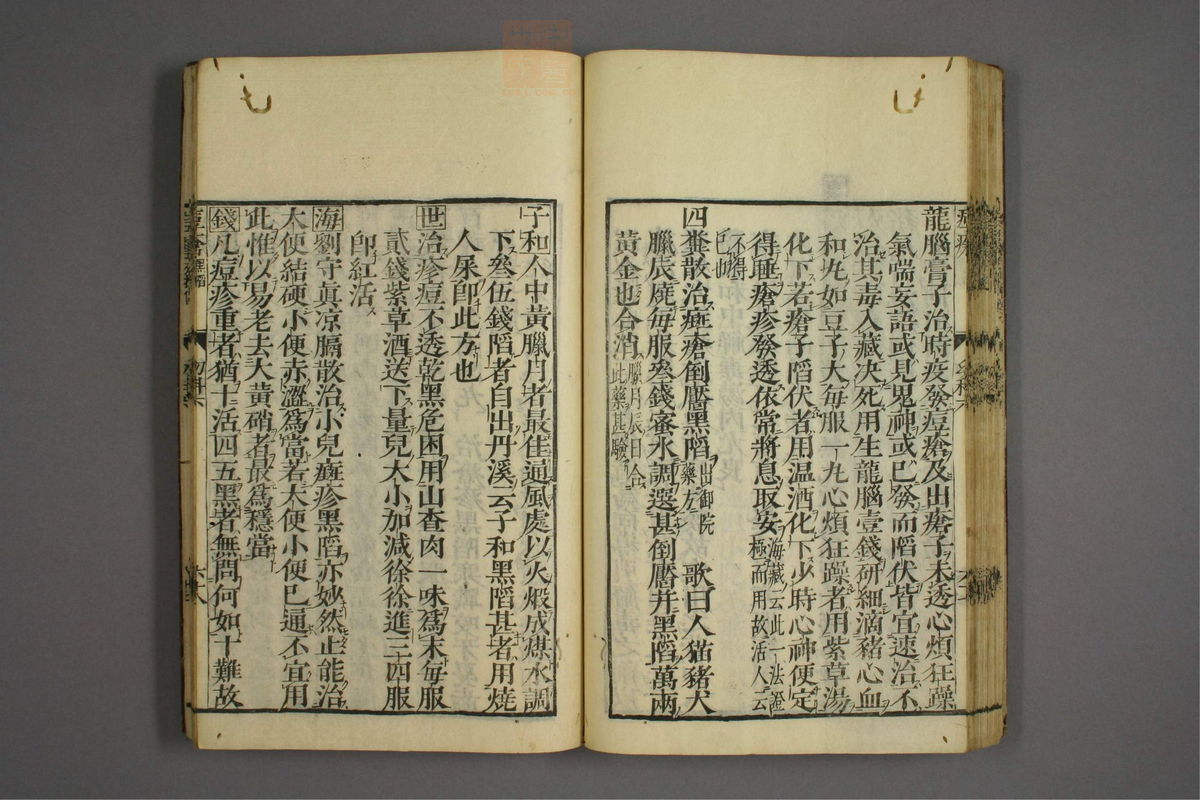 龍腦膏子治時疫發痘瘡及出瘡子未透心煩狂躁
氣喘妄語或見鬼神或已發而陷伏皆宜速治不
治其毒入藏決死用生龍腦壹錢研細滴豬心血
和丸如豆子大毎服一丸心煩狂躁者用紫草湯
化下若瘡子陷伏者用温酒化下少時心神便定
得睡瘡疹發透依常將息取安海藏云此一法證極而用故活人云
不得已也
四糞散治痘瘡倒靨黑陷出御院藥方 歌曰人猫豬犬
臘辰燒毎服叄錢蜜水調選甚倒靨并黑陷萬兩
黃金也合消臘月辰日合此藥甚驗
子和人中黃臘月者最佳過風處以火煅成煤水調
下叄伍錢陷者自出丹溪云子和黑陷甚者用燒
人屎卽此方也
世治疹痘不透乾黑危困用山查肉一味爲末毎服
貳錢紫草酒送下量兒大小加減徐徐進三四服
卽紅活
海劉守真凉膈散治小兒痘疹黑陷亦妙然止能治
大便結硬小便赤澀爲當若大便小便已通不宜用
此惟以易老去大黃硝者最爲穩當
錢凡痘疹重者猶十活四五黑者無問何如十難故